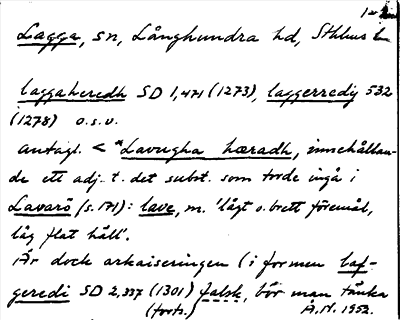 Lagga, sn, Långhundra hd, Sthlms l
laggaheredh SD 1,471 (1273), laggerredij 532
(1278) o.s.v.
antagl. < *Lavugha hæradh, innehållan-
de ett adj. t. det subst. som torde ingå i
Lavarö (s. 171): lave, m. 'lågt o. brett föremål,
låg flat häll'.
Är dock arkaiseringen (i formen laf-
geredi SD 2,337 (1301) falsk, bör man tänka
(forts.) A.N. 1952.